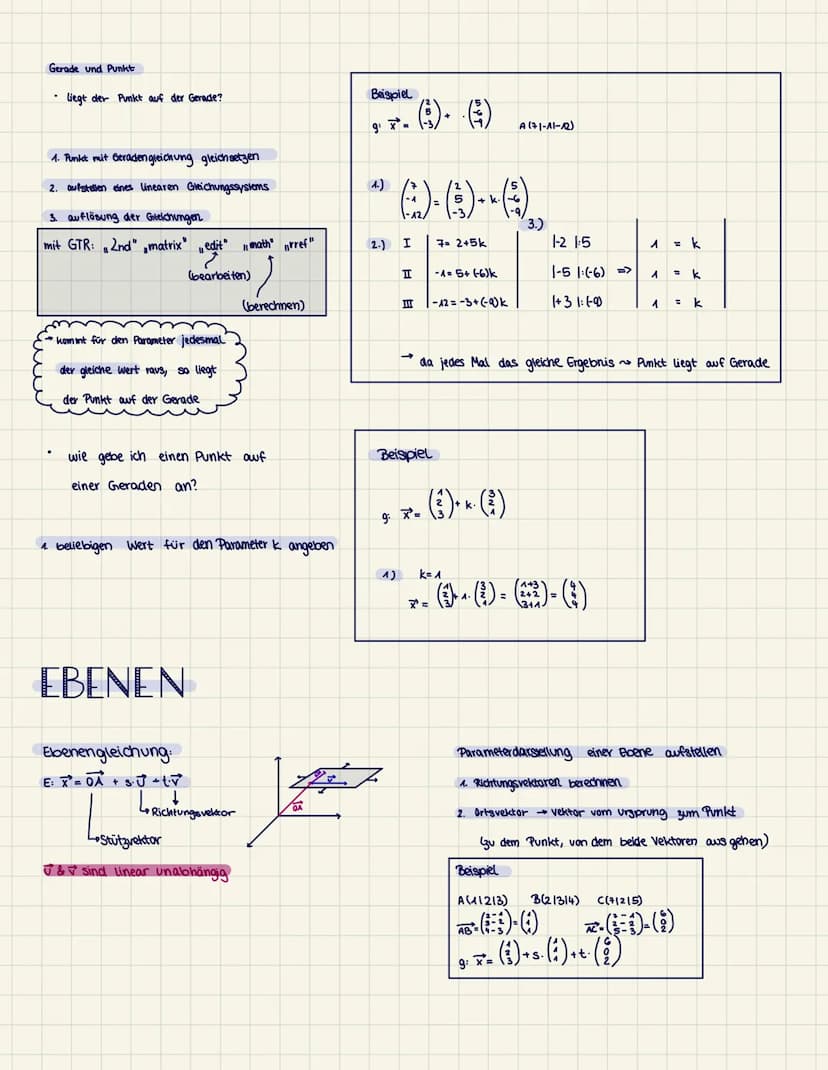 Gerade und Punkt
• liegt der Punkt auf der Gerade?
1. Punkt mit Geradengleichung gleichsetzen
2. aufstellen eines linearen Gleichungssystems
3. auflösung der Gleichungen
mit GTR: „2nd" „matrix" „edit" „math" „rref"
(bearbeiten)
(berechnen)
→ kommt für den Parameter jedesmal
der gleiche Wert raus, so liegt
der Punkt auf der Gerade
Beispiel
g: x⃗ = (2 5 -3) + · (5 -6 -9) A(7|-1|-12)
1.) (7 -1 -12) = (2 5 -3) + k · (5 -6 -9)
3.)
2.) I | 7 = 2+5k | |-2 |:5 | 1 = k |
II | -1 = 5+(-6)k | |-5 |:(-6) => | 1 = k |
III | -12 = -3+(-9)k | |+3 |:(-9) | 1 = k |
→ da jedes Mal das gleiche Ergebnis ~> Punkt liegt auf Gerade
• wie gebe ich einen Punkt auf
einer Geraden an?
1 beliebigen Wert für den Parameter k angeben
Beispiel
g: x⃗ = (1 2 3) + k · (3 2 1)
1) k=1
x⃗ = (1 2 3) + 1 · (3 2 1) = (1+3 2+2 3+1) = (4 4 4)
EBENEN
Ebenengleichung:
E: x⃗ = 0A⃗ + s·u⃗ + t·v⃗
↳ Richtungsvektor
↳ Stützvektor
u⃗ & v⃗ sind linear unabhängig
0A⃗
Parameterdarstellung einer Ebene aufstellen
1. Richtungsvektoren berechnen
2. Ortsvektor → Vektor vom Ursprung zum Punkt
(zu dem Punkt, von dem beide Vektoren aus gehen)
Beispiel
A(1|2|3) B(2|3|4) C(7|2|5)
AB⃗ = (2-1 3-2 4-3) = (1 1 1) AC⃗ = (7-1 2-2 5-3) = (6 0 2)
g: x⃗ = (1 2 3) + s · (1 1 1) + t · (6 0 2)